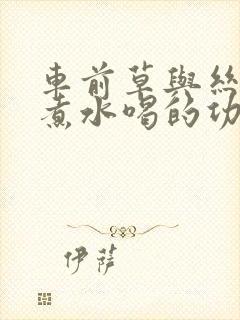 車前草與絲
煮水喝的功
伊薩